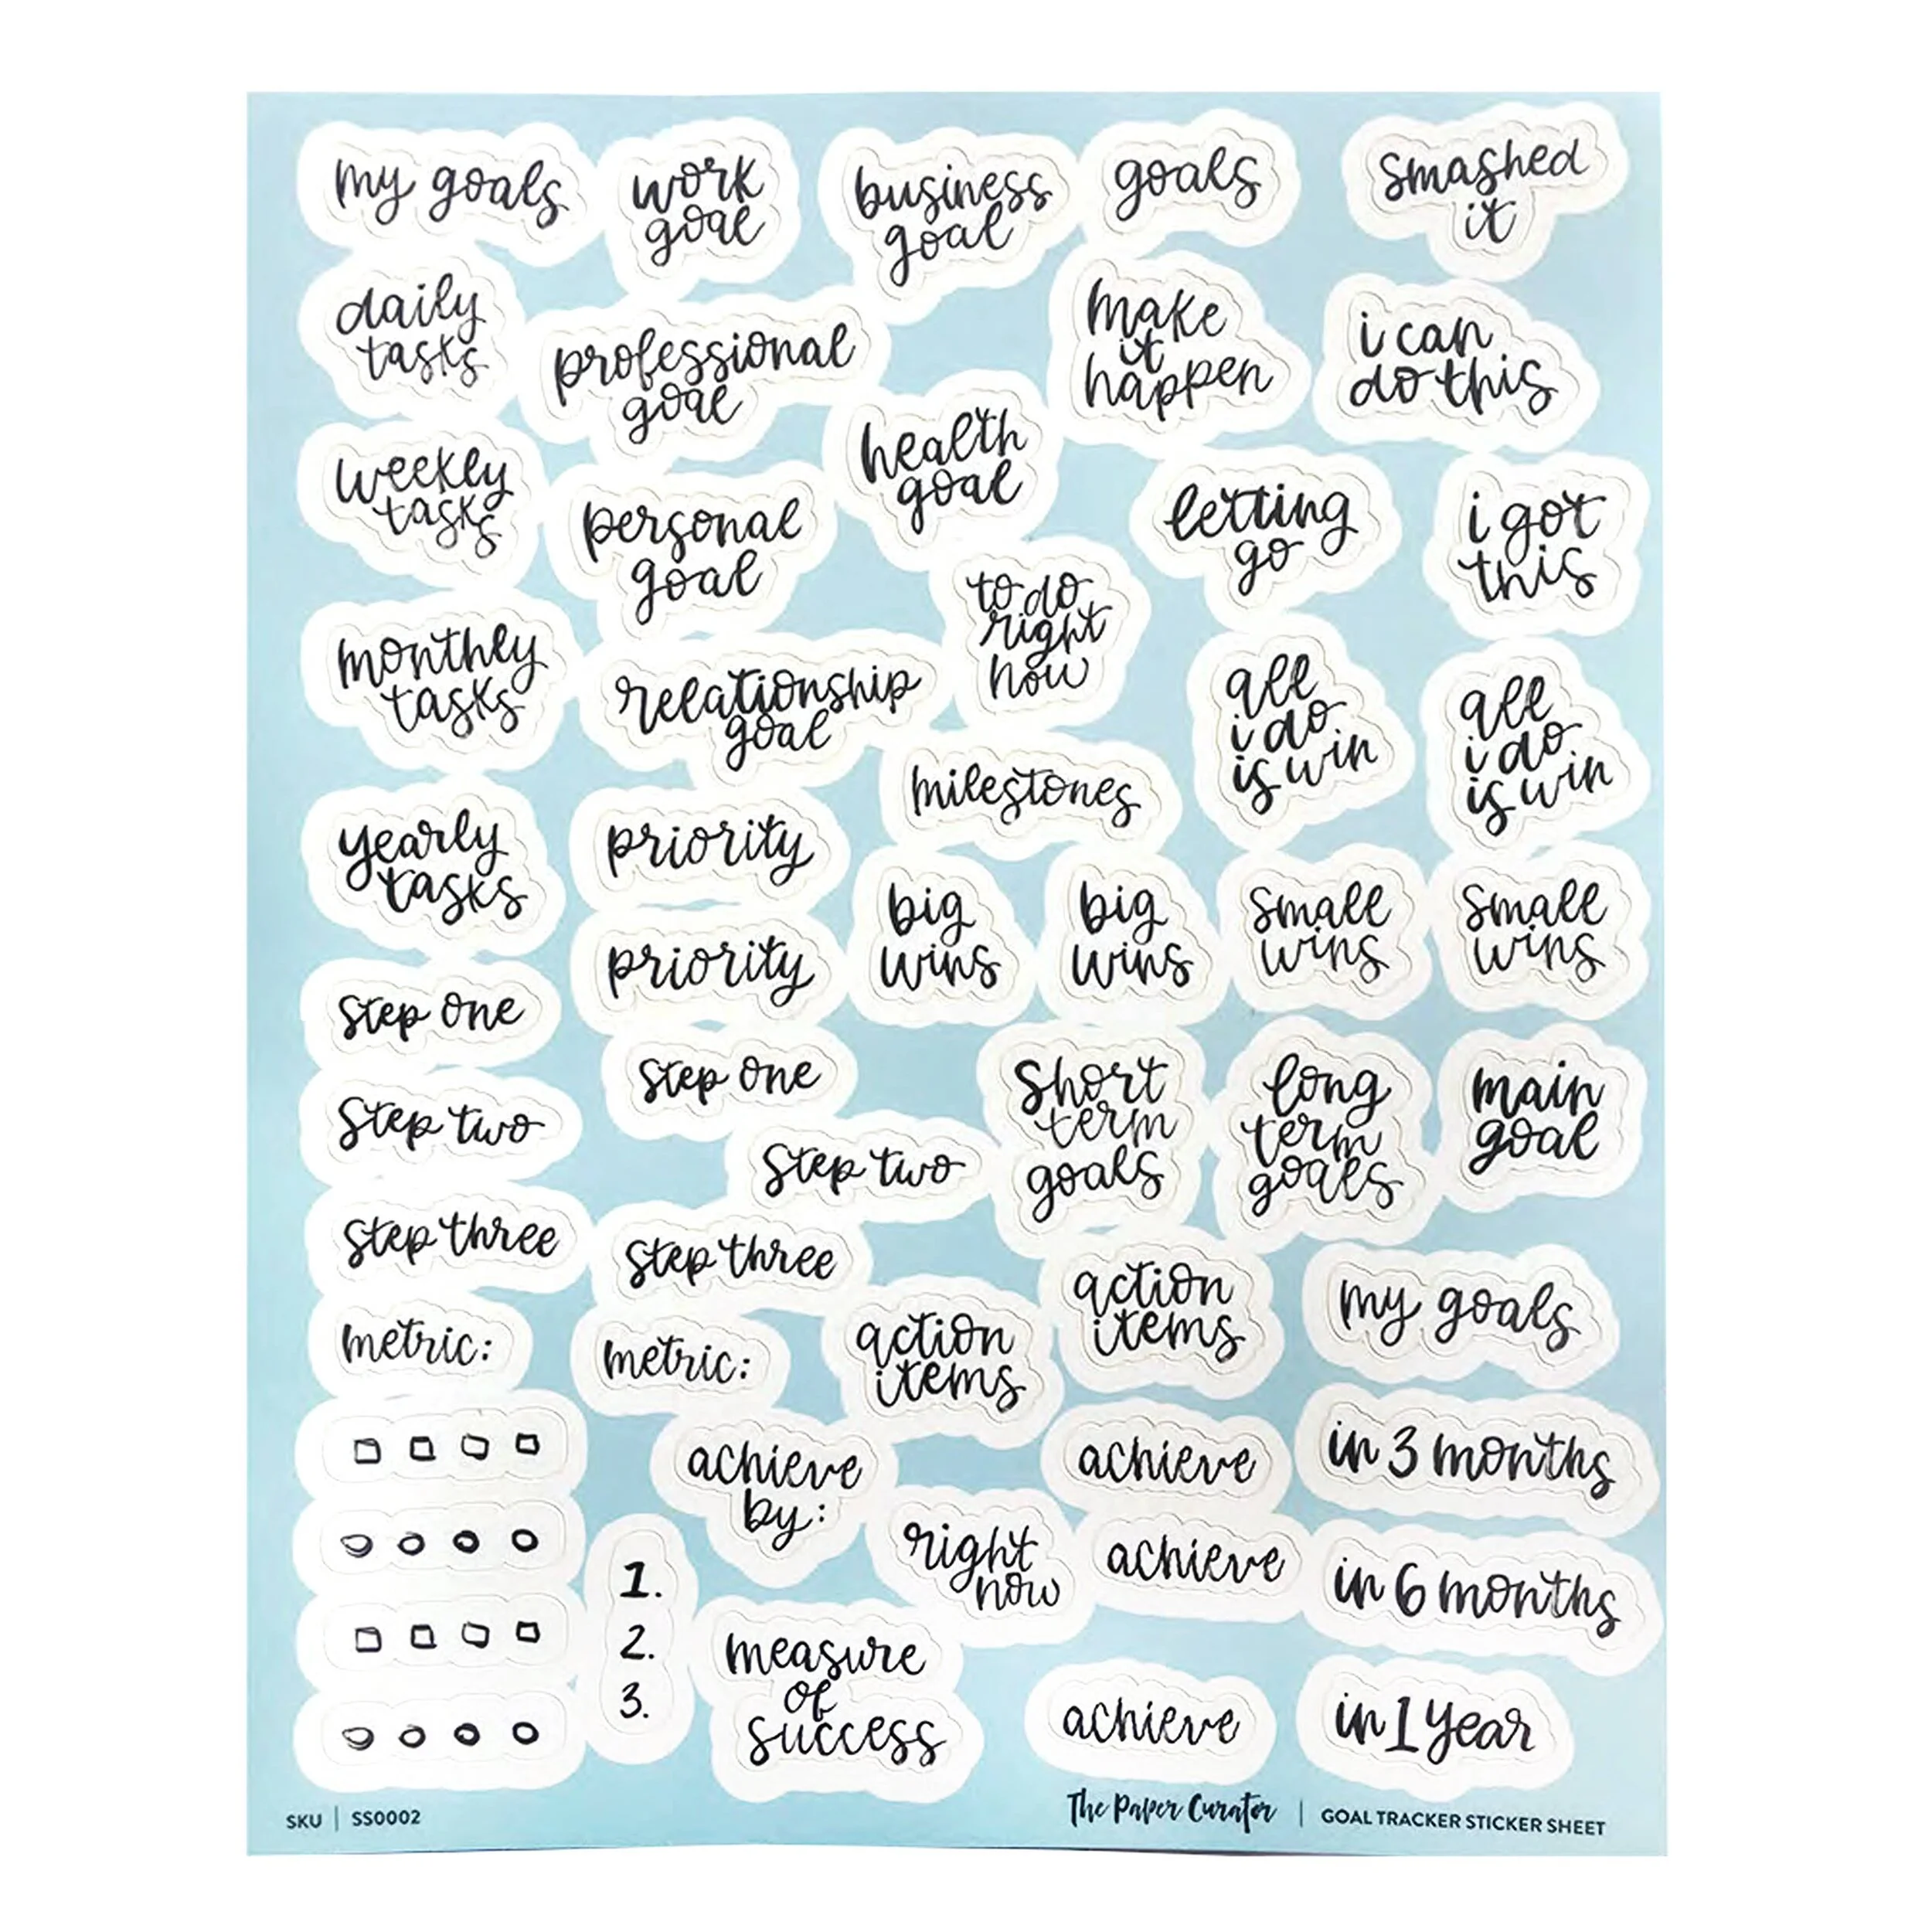 my goals
work
goal
business
goal
goals
smashed
it
daily
tasks
professional
goal
make
it
happen
i can
do this
weekly
tasks
health
goal
personal
goal
letting
go
i got
this
to do
right
now
monthly
tasks
relationship
goal
all
i do
is win
all
i do
is win
milestones
yearly
tasks
priority
big
wins
big
wins
small
wins
small
wins
priority
step one
step one
short
term
goals
long
term
goals
main
goal
step two
step two
step three
step three
action
items
my goals
metric:
metric:
action
items
achieve
by:
achieve
in 3 months
right
now
achieve
in 6 months
1.
2.
3.
measure
of
success
achieve
in 1 year
SKU | SS0002
The Paper Curator | GOAL TRACKER STICKER SHEET